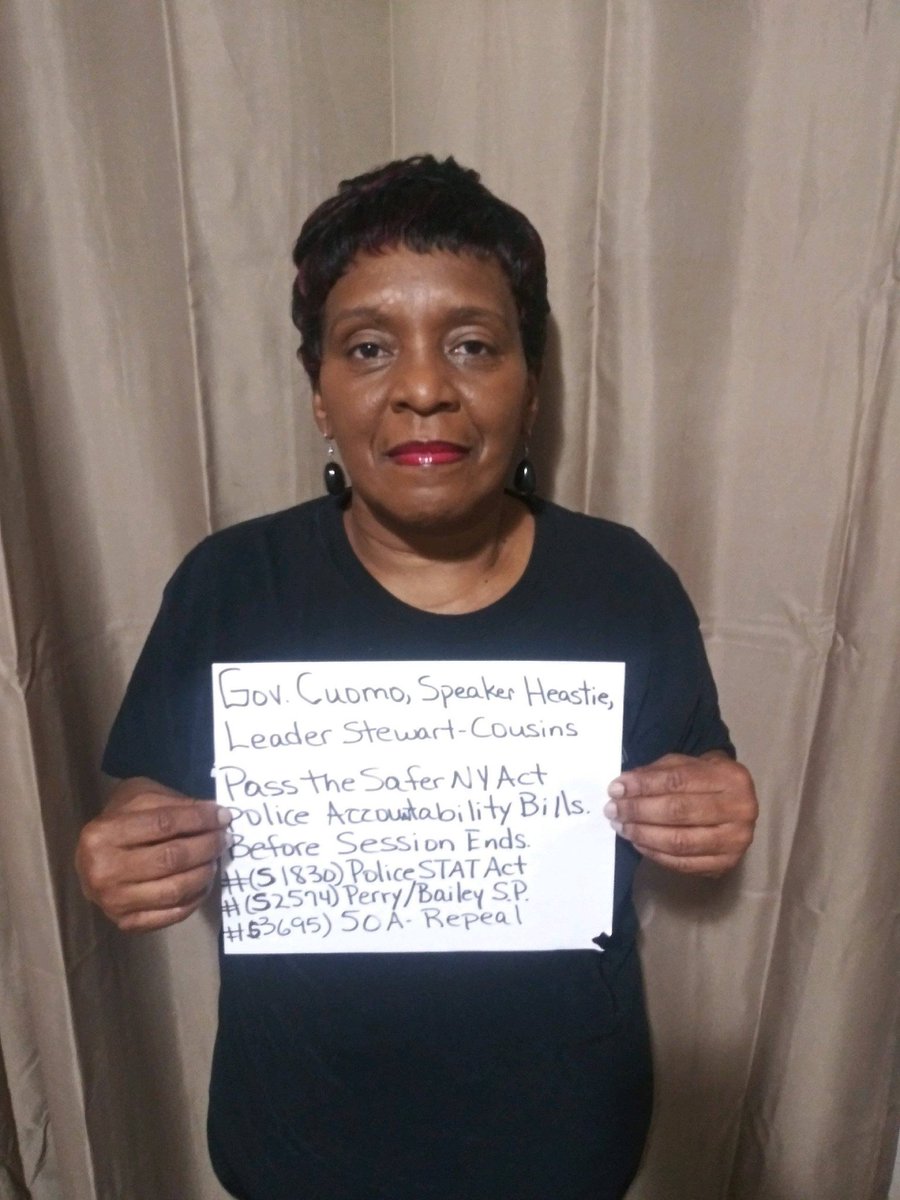 Gov. Cuomo, Speaker Heastie,
Leader Stewart-Cousins
Pass the Safer NY Act
Police Accountability Bills.
Before Session Ends.
#(S1830) Police STAT Act
#(S2574) Perry/Bailey S.P.
#S3695) 50A- Repeal